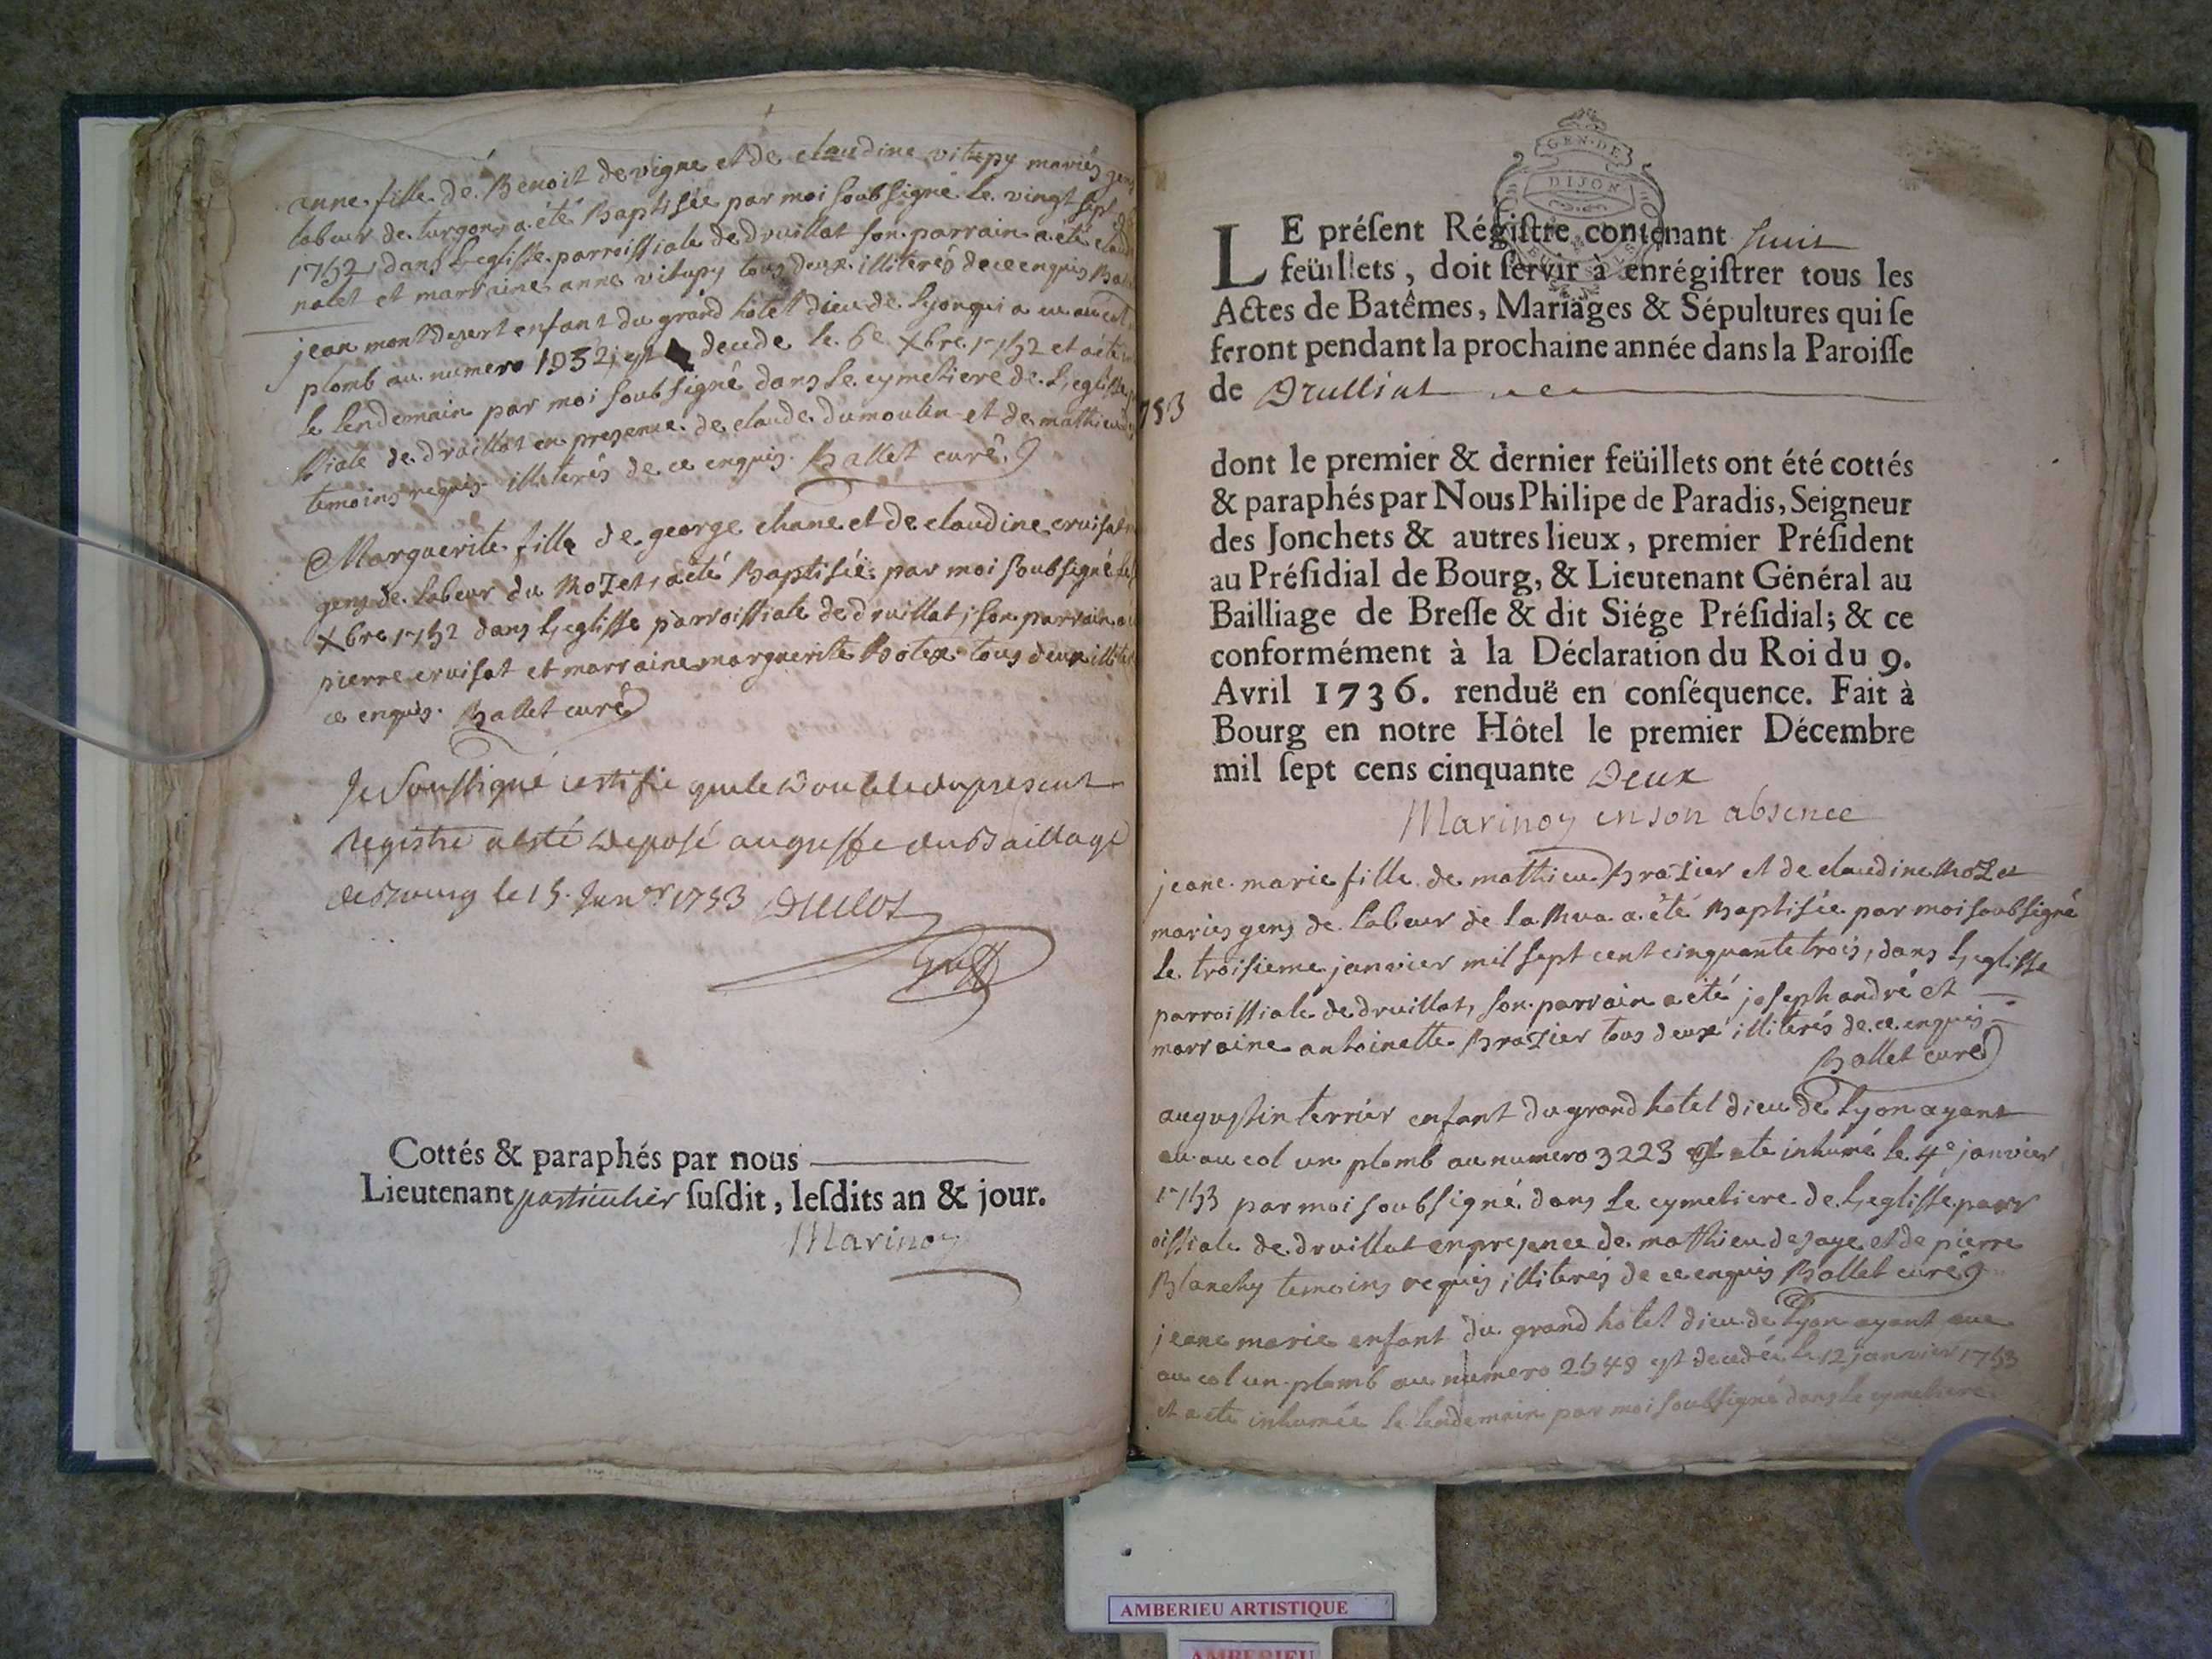 anne fille de Benoit devigne et de claudine vitupy mariés gens
labeur de turgon a été Baptisée par moi soubsigné le vingt sept
1752, dans L'eglisse parroissiale de druillat son parrain a été
nalet et marraine anne vitupy tous deux illiterés de ce enquis
jean montdesert enfant du grand hotel dieu de Lyon qui a eu au col
plomb au numero 1932, est decede le 6e Xbre 1752 et a été
le lendemain par moi soubsigné dans le cymetiere de L'eglisse
ssiale de druillat en presence de claude dumoulin et de mathieu
temoins requis illiterés de ce enquis. Ballet curé
Marguerite fille de george chane et de claudine cruisat
gens de labeur du Mozet, a été Baptisée par moi soubsigné le
Xbre 1752 dans L'eglisse parroissiale de druillat, son parrain a
pierre cruisat et marraine marguerite Botex tous deux
ce enquis. Ballet curé
Je Soussigné certifie que le Double du present
Registre a esté deposé au greffe du Baillage
de Bourg le 15. Janvr 1753
Cottés & paraphés par nous
Lieutenant particulier susdit, lesdits an & jour.
Marinoy
GEN·DE
DIJON
LE présent Régistre contenant huit
feüillets, doit servir à enrégistrer tous les
Actes de Batêmes, Mariâges & Sépultures qui se
feront pendant la prochaine année dans la Paroisse
de Drulliat
753
dont le premier & dernier feüillets ont été cottés
& paraphés par Nous Philipe de Paradis, Seigneur
des Jonchets & autres lieux, premier Président
au Présidial de Bourg, & Lieutenant Général au
Bailliage de Bresse & dit Siége Présidial; & ce
conformément à la Déclaration du Roi du 9.
Avril 1736. renduë en conséquence. Fait à
Bourg en notre Hôtel le premier Décembre
mil sept cens cinquante Deux
Marinoy en son absence
jeane marie fille de mathieu Brazier et de claudine Mozet
mariés gens de labeur de la Rua a été Baptisée par moi soubsigné
le troisieme janvier mil sept cent cinquante trois, dans L'eglisse
parroissiale de druillat, son parrain a été joseph andré et
marraine antoinette Brazier tous deux illiterés de ce enquis
Ballet curé
augustin terrier enfant du grand hotel dieu de Lyon ayant
eu au col un plomb au numero 3223 a ete inhumé le 4e janvier
1753 par moi soubsigné dans le cymetiere de L'eglisse parr
oissiale de druillat en presence de mathieu desaye et de pierre
Blanchy temoins requis illiterés de ce enquis Ballet curé
jeane marie enfant du grand hotel dieu de Lyon ayant eue
au col un plomb au numero 2548 est decedée le 12 janvier 1753
et a ete inhumée le lendemain par moi soubsigné dans le cymetiere
AMBERIEU ARTISTIQUE
AMBERIEU